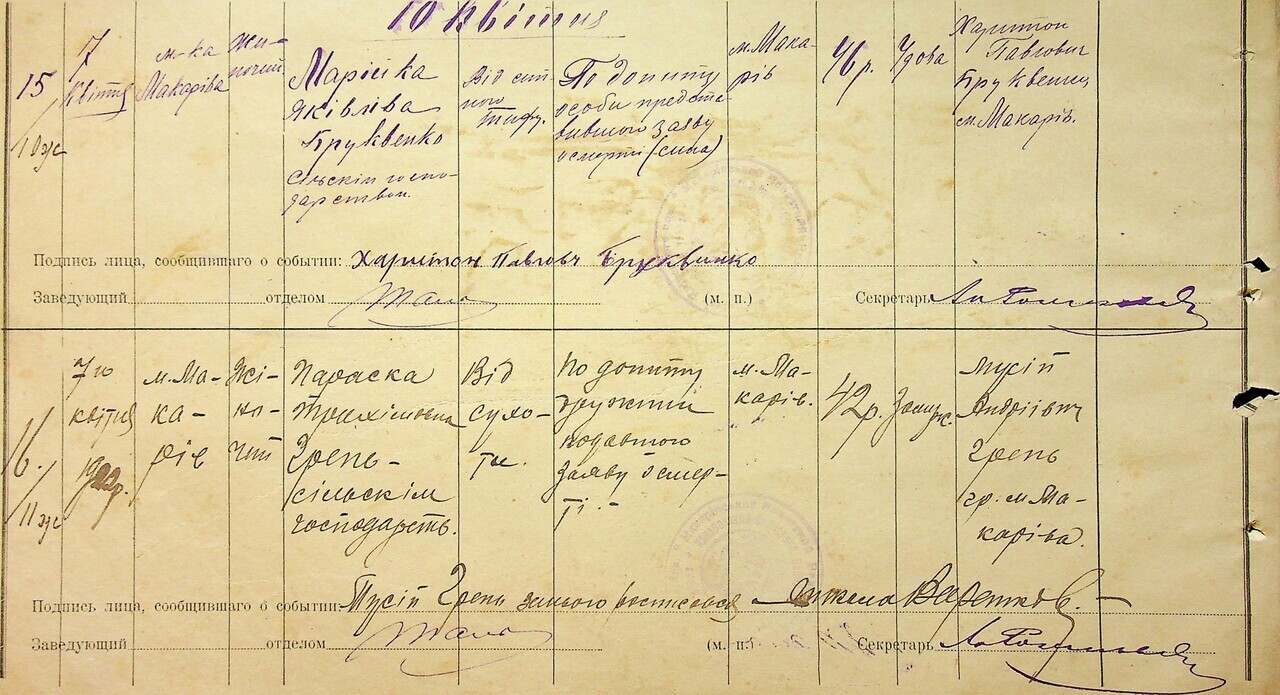 10 квітня
15
10 ж
7
квітня
м-ка
Макарїва
Жи-
ночий
Марійка
Яківліва
Бруквенко
Сільскім госпо-
дарством.
Від сип-
ного
тифу.
По допиту
особи предста-
вившого заяву
о смерті (сина)
м. Мака-
рів
46 р.
Удова
Харитон
Павлович
Бруквенко
м. Макарів.
Подпись лица, сообщившего о событии: Харитон Павлович Бруквенко
Заведующий отделом (м. п.) Секретарь
16.
11 ж
7го
квітня
1922р.
м. Ма-
ка-
рів
Жі-
но-
чий
Параска
Трохімовна
Грень-
сільскім
господарств.
Від
сухо-
ти.
По допиту
дружини
подавшого
заяву о смер-
ті.-
м. Ма-
карів.
42р.
Замуж.
Мусій
Андрієвич
Грень
гр. м. Ма-
каріва.
Подпись лица, сообщившего о событии: Мусій Грень
Заведующий отделом (м. п.) Секретарь